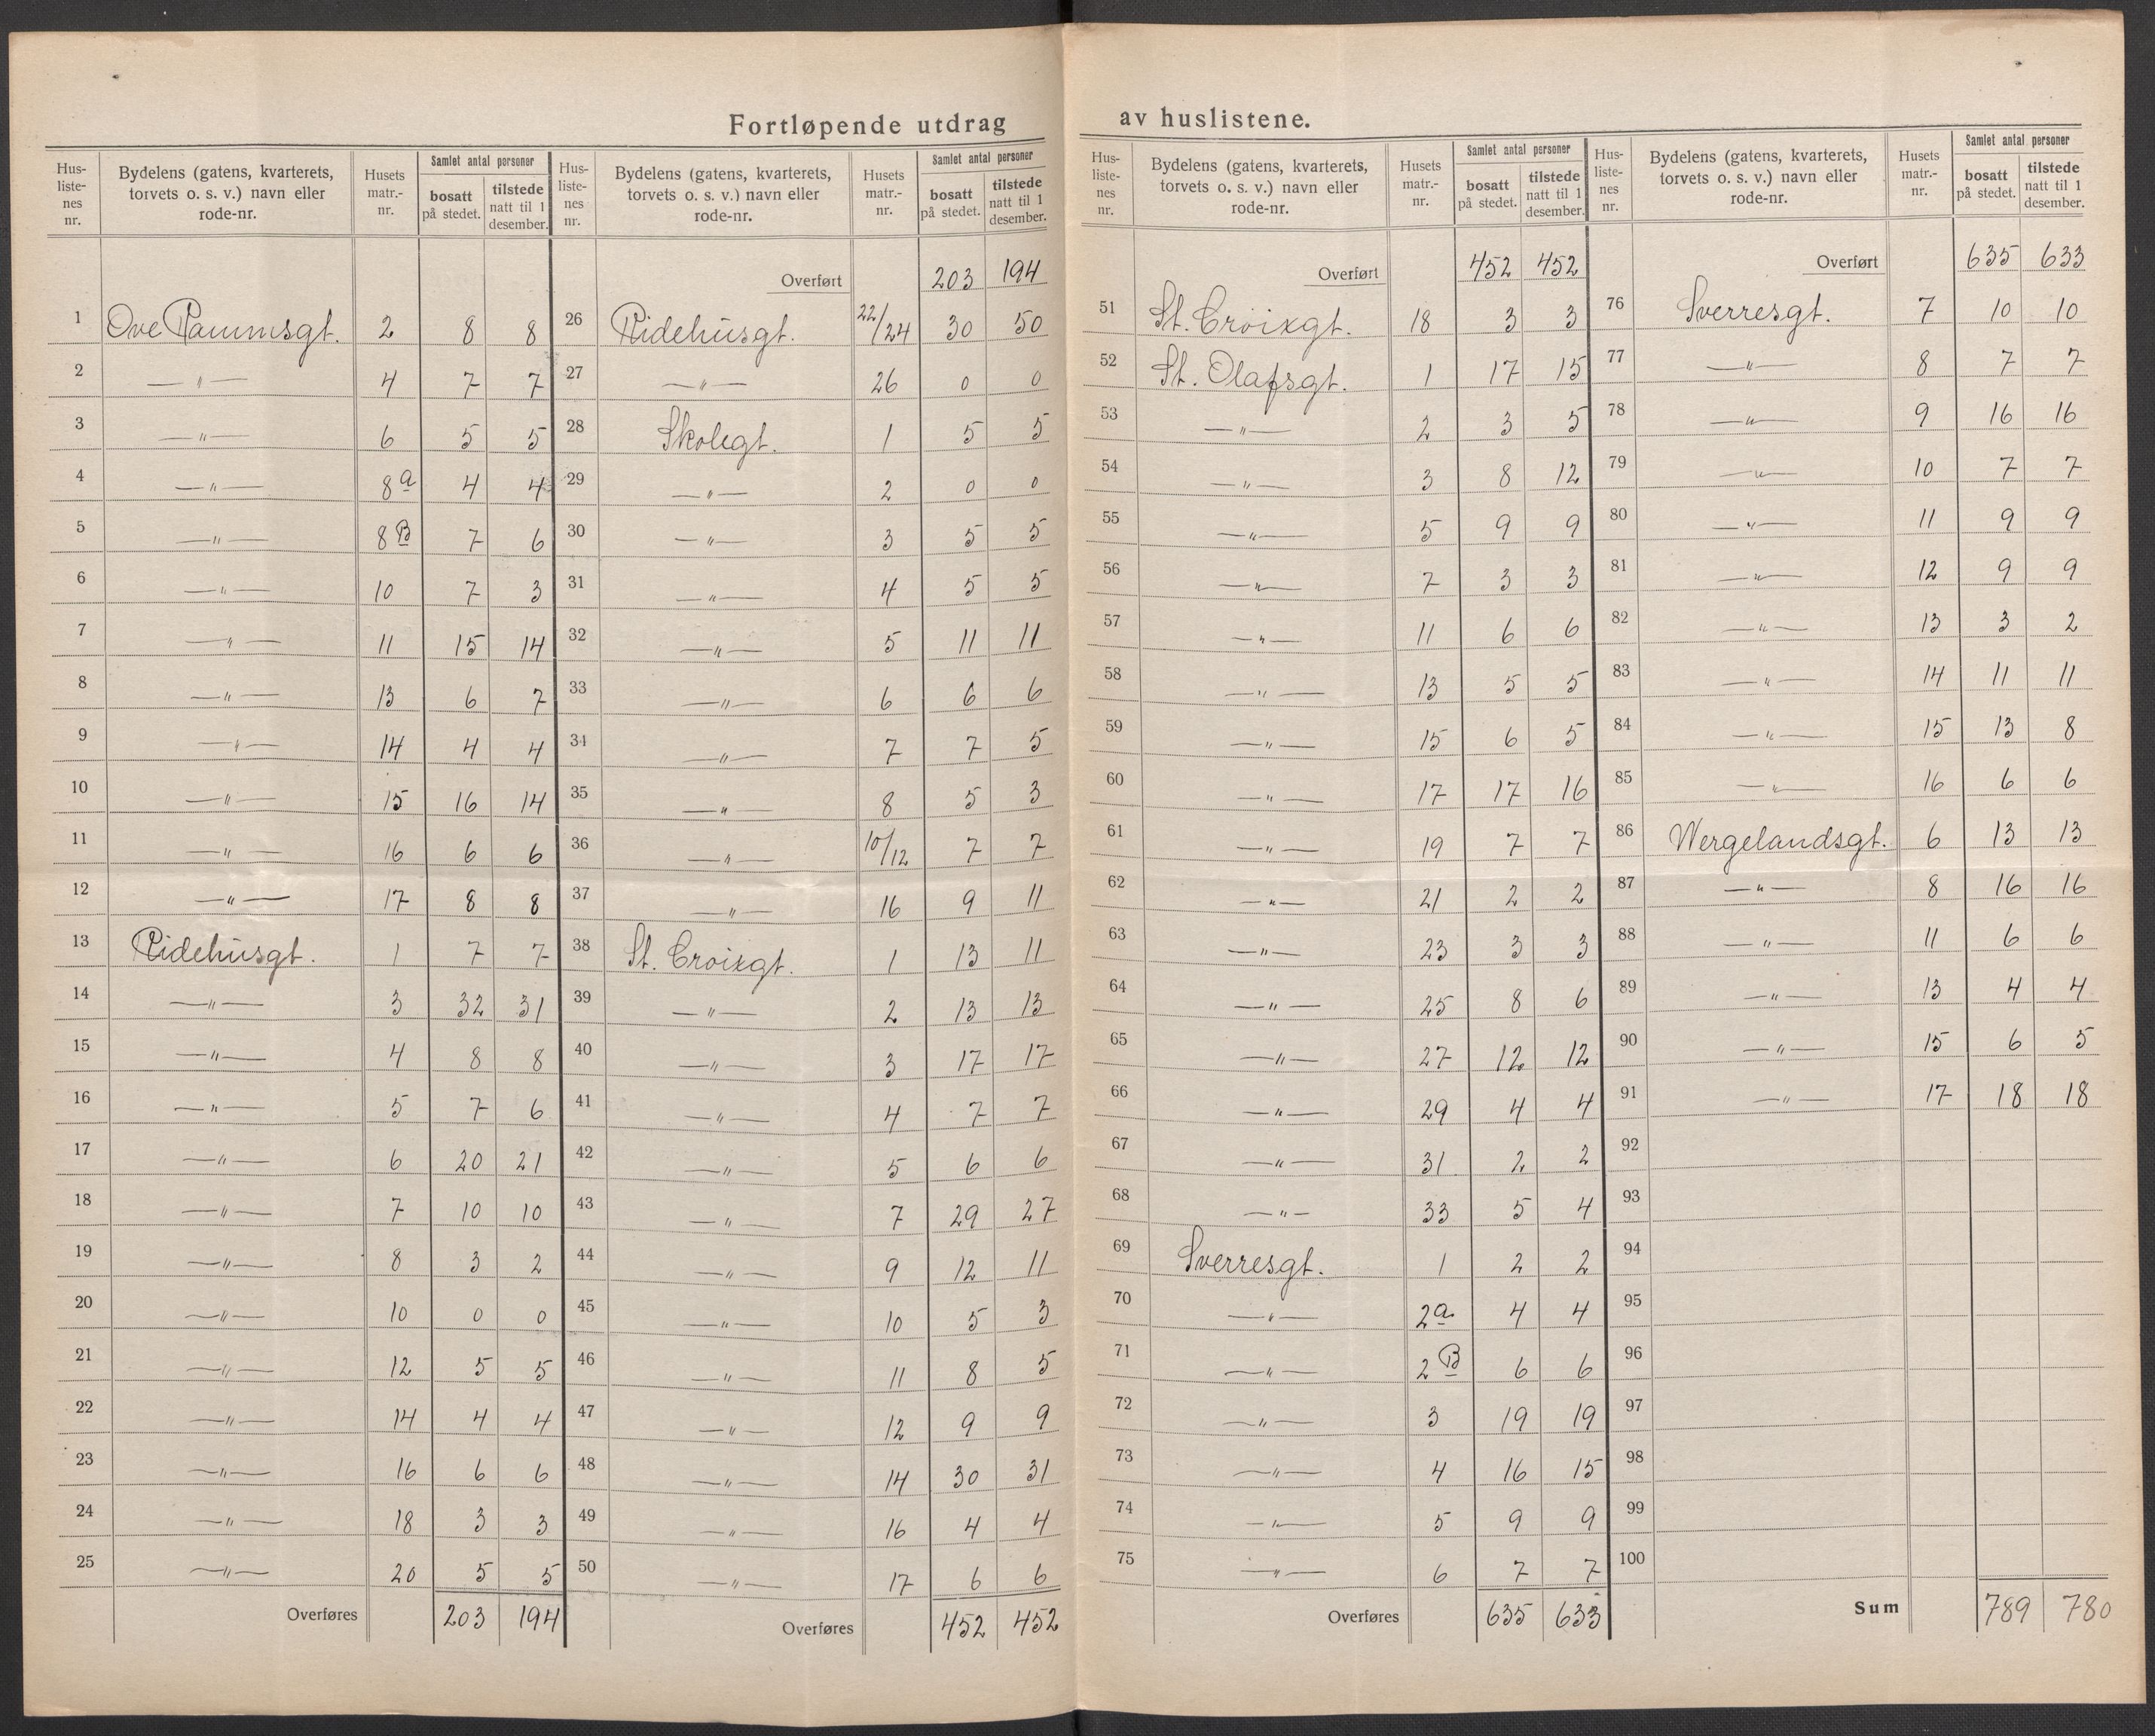 Fortløpende utdrag av huslistene.
Hus-liste-nes nr. | Bydelens (gatens, kvarterets, torvets o. s. v.) navn eller rode-nr. | Husets matr.-nr. | Samlet antal personer bosatt på stedet. | tilstede natt til 1 desember.
1 Ove Rammsgt. 2 8 8
2 —„— 4 7 7
3 —„— 6 5 5
4 —„— 8a 4 4
5 —„— 8B 7 6
6 —„— 10 7 3
7 —„— 11 15 14
8 —„— 13 6 7
9 —„— 14 4 4
10 —„— 15 16 14
11 —„— 16 6 6
12 —„— 17 8 8
13 Ridehusgt. 1 7 7
14 —„— 3 32 31
15 —„— 4 8 8
16 —„— 5 7 6
17 —„— 6 20 21
18 —„— 7 10 10
19 —„— 8 3 2
20 —„— 10 0 0
21 —„— 12 5 5
22 —„— 14 4 4
23 —„— 16 6 6
24 —„— 18 3 3
25 —„— 20 5 5
Overføres 203 194
Hus-liste-nes nr. | Bydelens (gatens, kvarterets, torvets o. s. v.) navn eller rode-nr. | Husets matr.-nr. | Samlet antal personer bosatt på stedet. | tilstede natt til 1 desember.
Overført 203 194
26 Ridehusgt. 22/24 30 50
27 —„— 26 0 0
28 Skolegt. 1 5 5
29 —„— 2 0 0
30 —„— 3 5 5
31 —„— 4 5 5
32 —„— 5 11 11
33 —„— 6 6 6
34 —„— 7 7 5
35 —„— 8 5 3
36 —„— 10/12 7 7
37 —„— 16 9 11
38 St. Croixgt. 1 13 11
39 —„— 2 13 13
40 —„— 3 17 17
41 —„— 4 7 7
42 —„— 5 6 6
43 —„— 7 29 27
44 —„— 9 12 11
45 —„— 10 5 3
46 —„— 11 8 5
47 —„— 12 9 9
48 —„— 14 30 31
49 —„— 16 4 4
50 —„— 17 6 6
Overføres 452 452
Hus-liste-nes nr. | Bydelens (gatens, kvarterets, torvets o. s. v.) navn eller rode-nr. | Husets matr.-nr. | Samlet antal personer bosatt på stedet. | tilstede natt til 1 desember.
Overført 452 452
51 St. Croixgt. 18 3 3
52 St. Olafsgt. 1 17 15
53 —„— 2 3 5
54 —„— 3 8 12
55 —„— 5 9 9
56 —„— 7 3 3
57 —„— 11 6 6
58 —„— 13 5 5
59 —„— 15 6 5
60 —„— 17 17 16
61 —„— 19 7 7
62 —„— 21 2 2
63 —„— 23 3 3
64 —„— 25 8 6
65 —„— 27 12 12
66 —„— 29 4 4
67 —„— 31 2 2
68 —„— 33 5 4
69 Sverresgt. 1 2 2
70 —„— 2a 4 4
71 —„— 2B 6 6
72 —„— 3 19 19
73 —„— 4 16 15
74 —„— 5 9 9
75 —„— 6 7 7
Overføres 635 633
Hus-liste-nes nr. | Bydelens (gatens, kvarterets, torvets o. s. v.) navn eller rode-nr. | Husets matr.-nr. | Samlet antal personer bosatt på stedet. | tilstede natt til 1 desember.
Overført 635 633
76 Sverresgt. 7 10 10
77 —„— 8 7 7
78 —„— 9 16 16
79 —„— 10 7 7
80 —„— 11 9 9
81 —„— 12 9 9
82 —„— 13 3 2
83 —„— 14 11 11
84 —„— 15 13 8
85 —„— 16 6 6
86 Wergelandsgt. 6 13 13
87 —„— 8 16 16
88 —„— 11 6 6
89 —„— 13 4 4
90 —„— 15 6 5
91 —„— 17 18 18
92
93
94
95
96
97
98
99
100
Sum 789 780